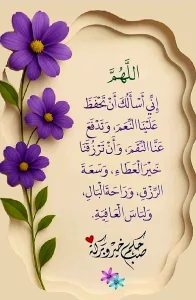 اللَّهُمَّ
إِنِّي أَسْأَلُكَ أَنْ تَحْفَظَ
عَلَيْنَا النِّعَمَ، وَتَدْفَعَ
عَنَّا النِّقَمَ، وَأَنْ تَرْزُقَنَا
خَيْرَ الْعَطَاءِ، وَسَعَةَ
الرِّزْقِ، وَرَاحَةَ الْبَالِ،
وَلِبَاسَ الْعَافِيَةِ.
صباحكم خير وبركة